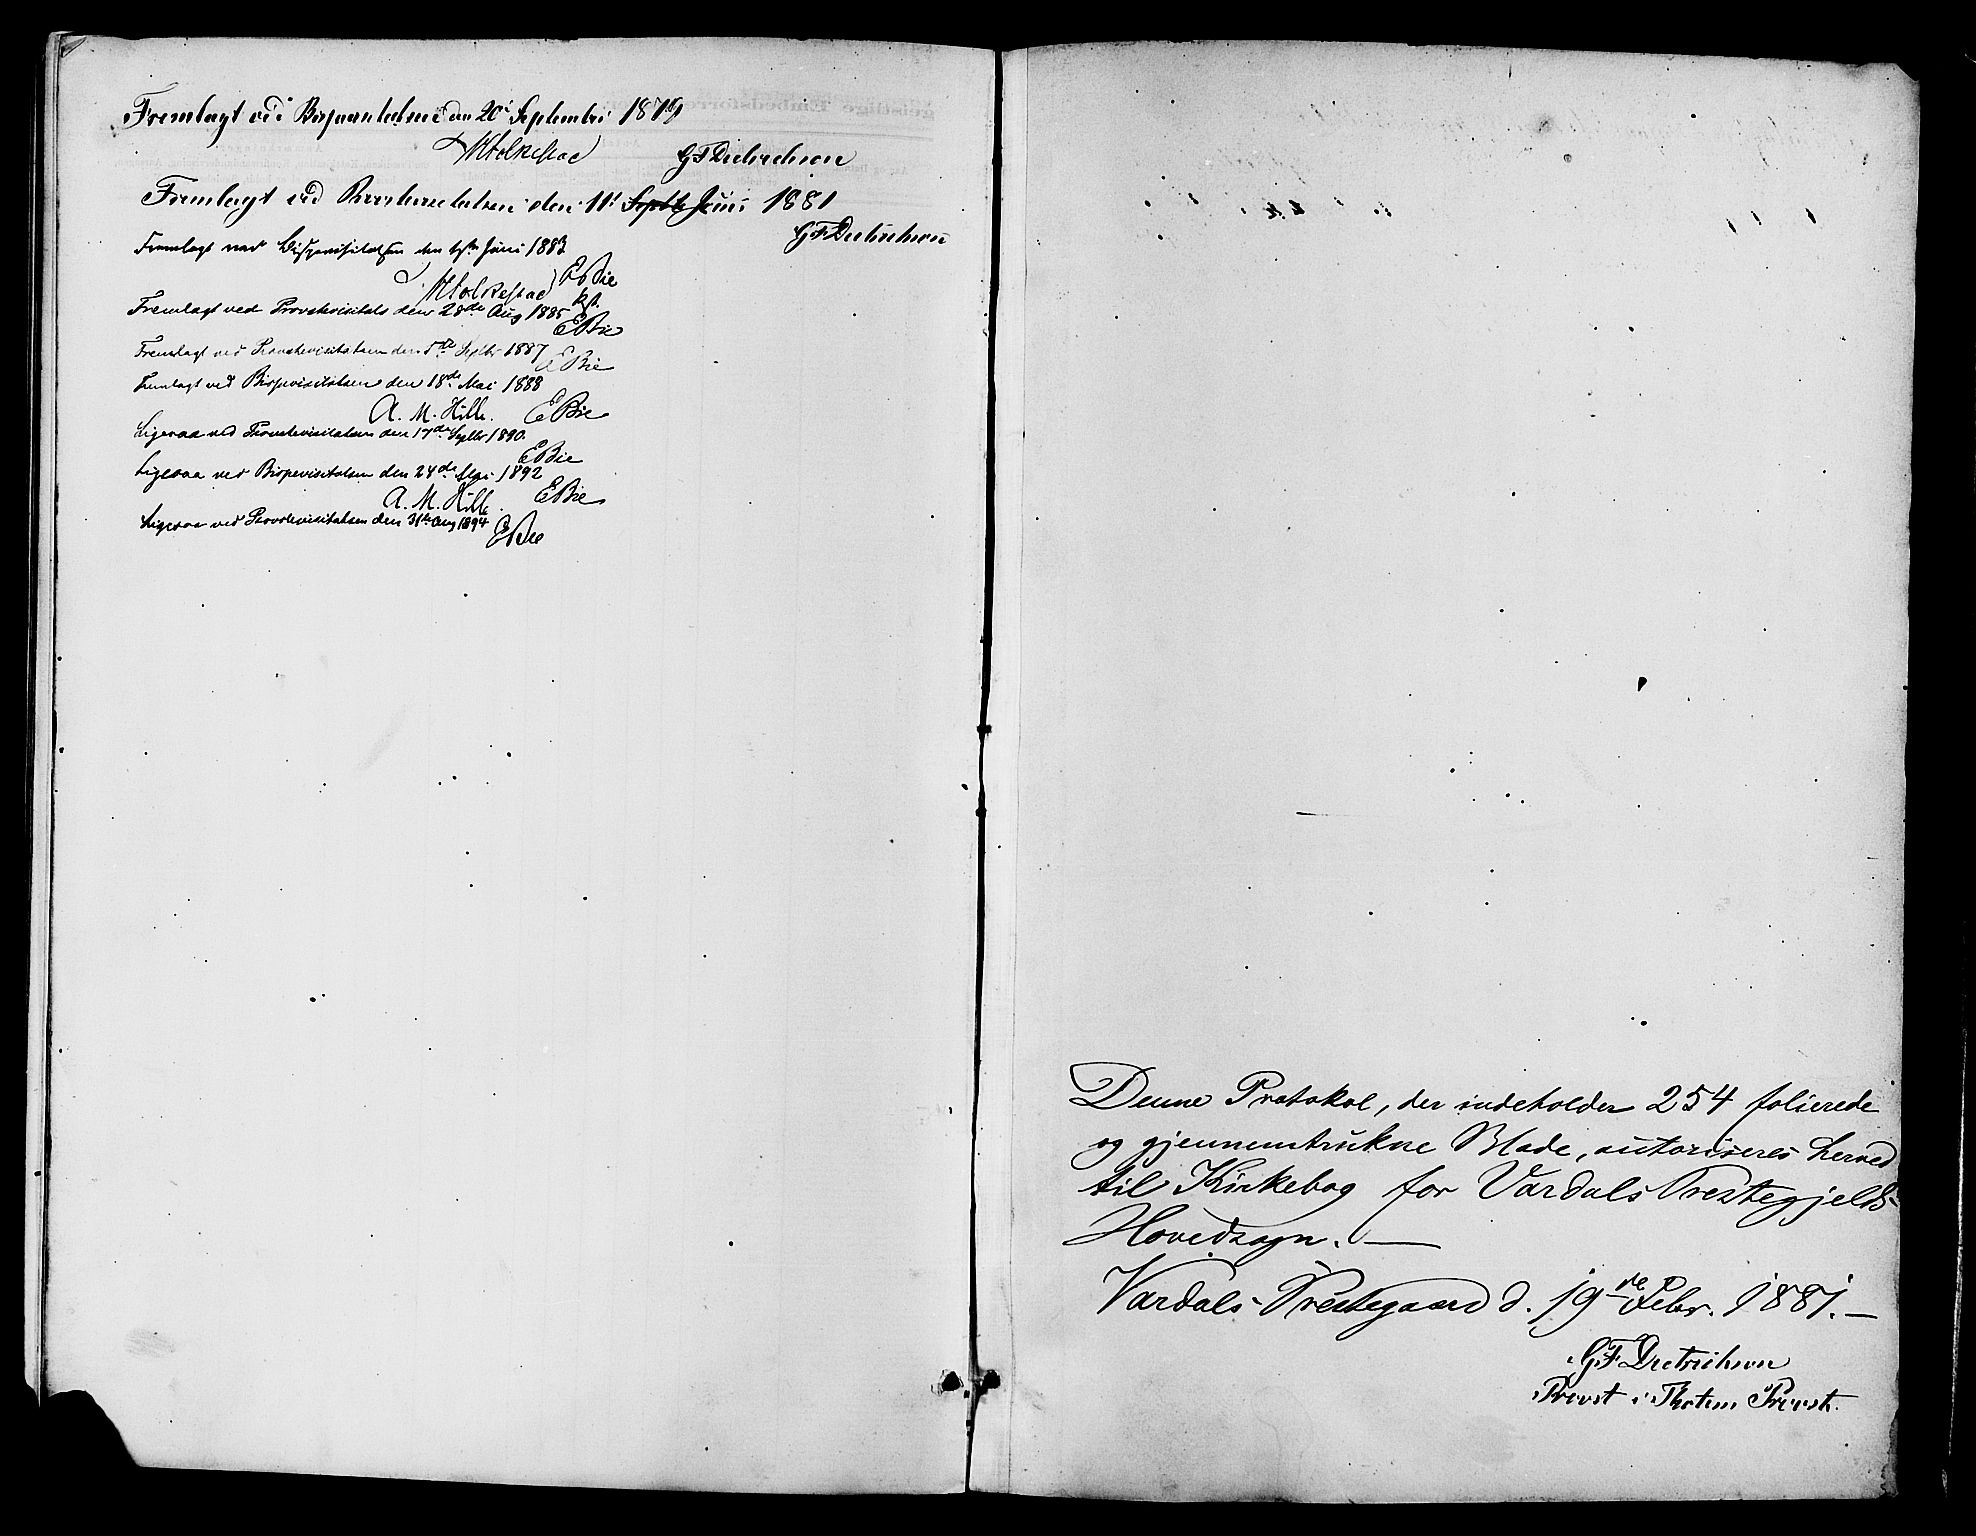 Fremlagt ved Bispevisitatsen den 20 September 1879
GFDietrichson
Fremlagt ved Provstevisitatsen den 11te Septb Juni 1881
GFDietrichson
Fremlagt ved Bispevisitatsen den Juni 1883
EBie
kst.
Fremlagt ved Provstevisitats den 28de Aug 1885
EBie
Fremlagt ved Provstevisitatsen den 5te Septbr 1887
EBie
Fremlagt ved Bispevisitatsen den 18de Mai 1888
A. M. Hille. EBie
Ligesaa ved Provstevisitatsen den 17de Septbr 1890.
EBie
Ligesaa ved Bispevisitatsen den 24de Mai 1892
A. M. Hille. EBie
Ligesaa ved Provstevisitatsen den 31te Aug 1894
EBie
Denne Protokol, der indeholder 254 folierede
og gjennemtrukne Blade, autoriseres herved
til Kirkebog for Vardals Prestegjelds-
Hovedsogn. —
Vardals Prestegaard d. 19de Febr. 1881. —
GFDietrichson
Provst i Thoten Provsti.